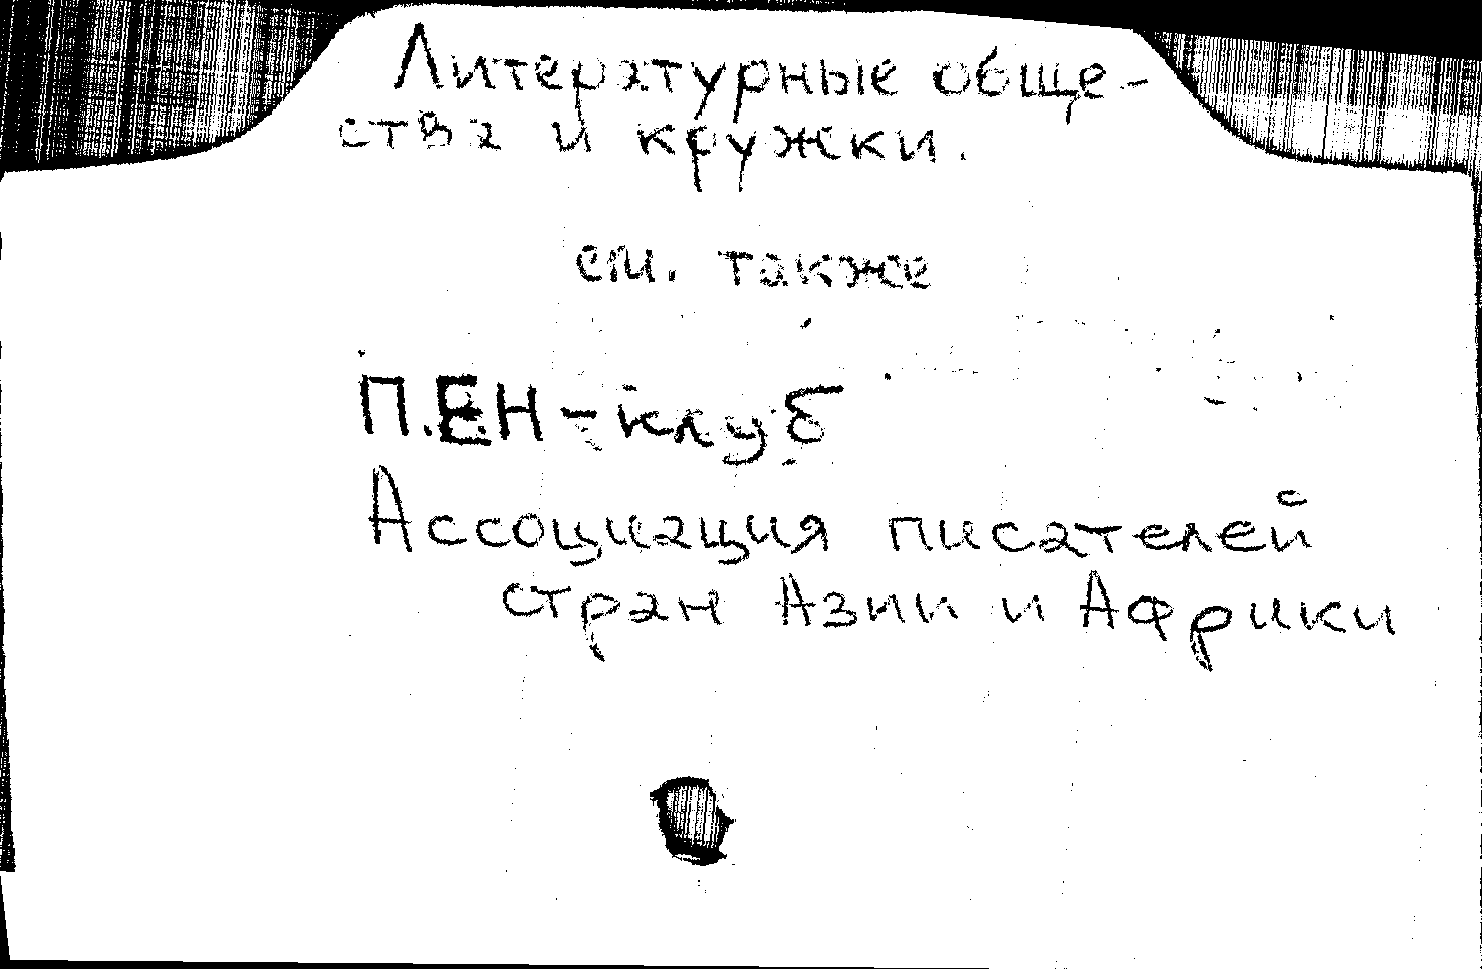 Литературные обще-
ства и кружки.
см. также
П.Е.Н-клуб
Ассоциация писателей
стран Азии и Африки